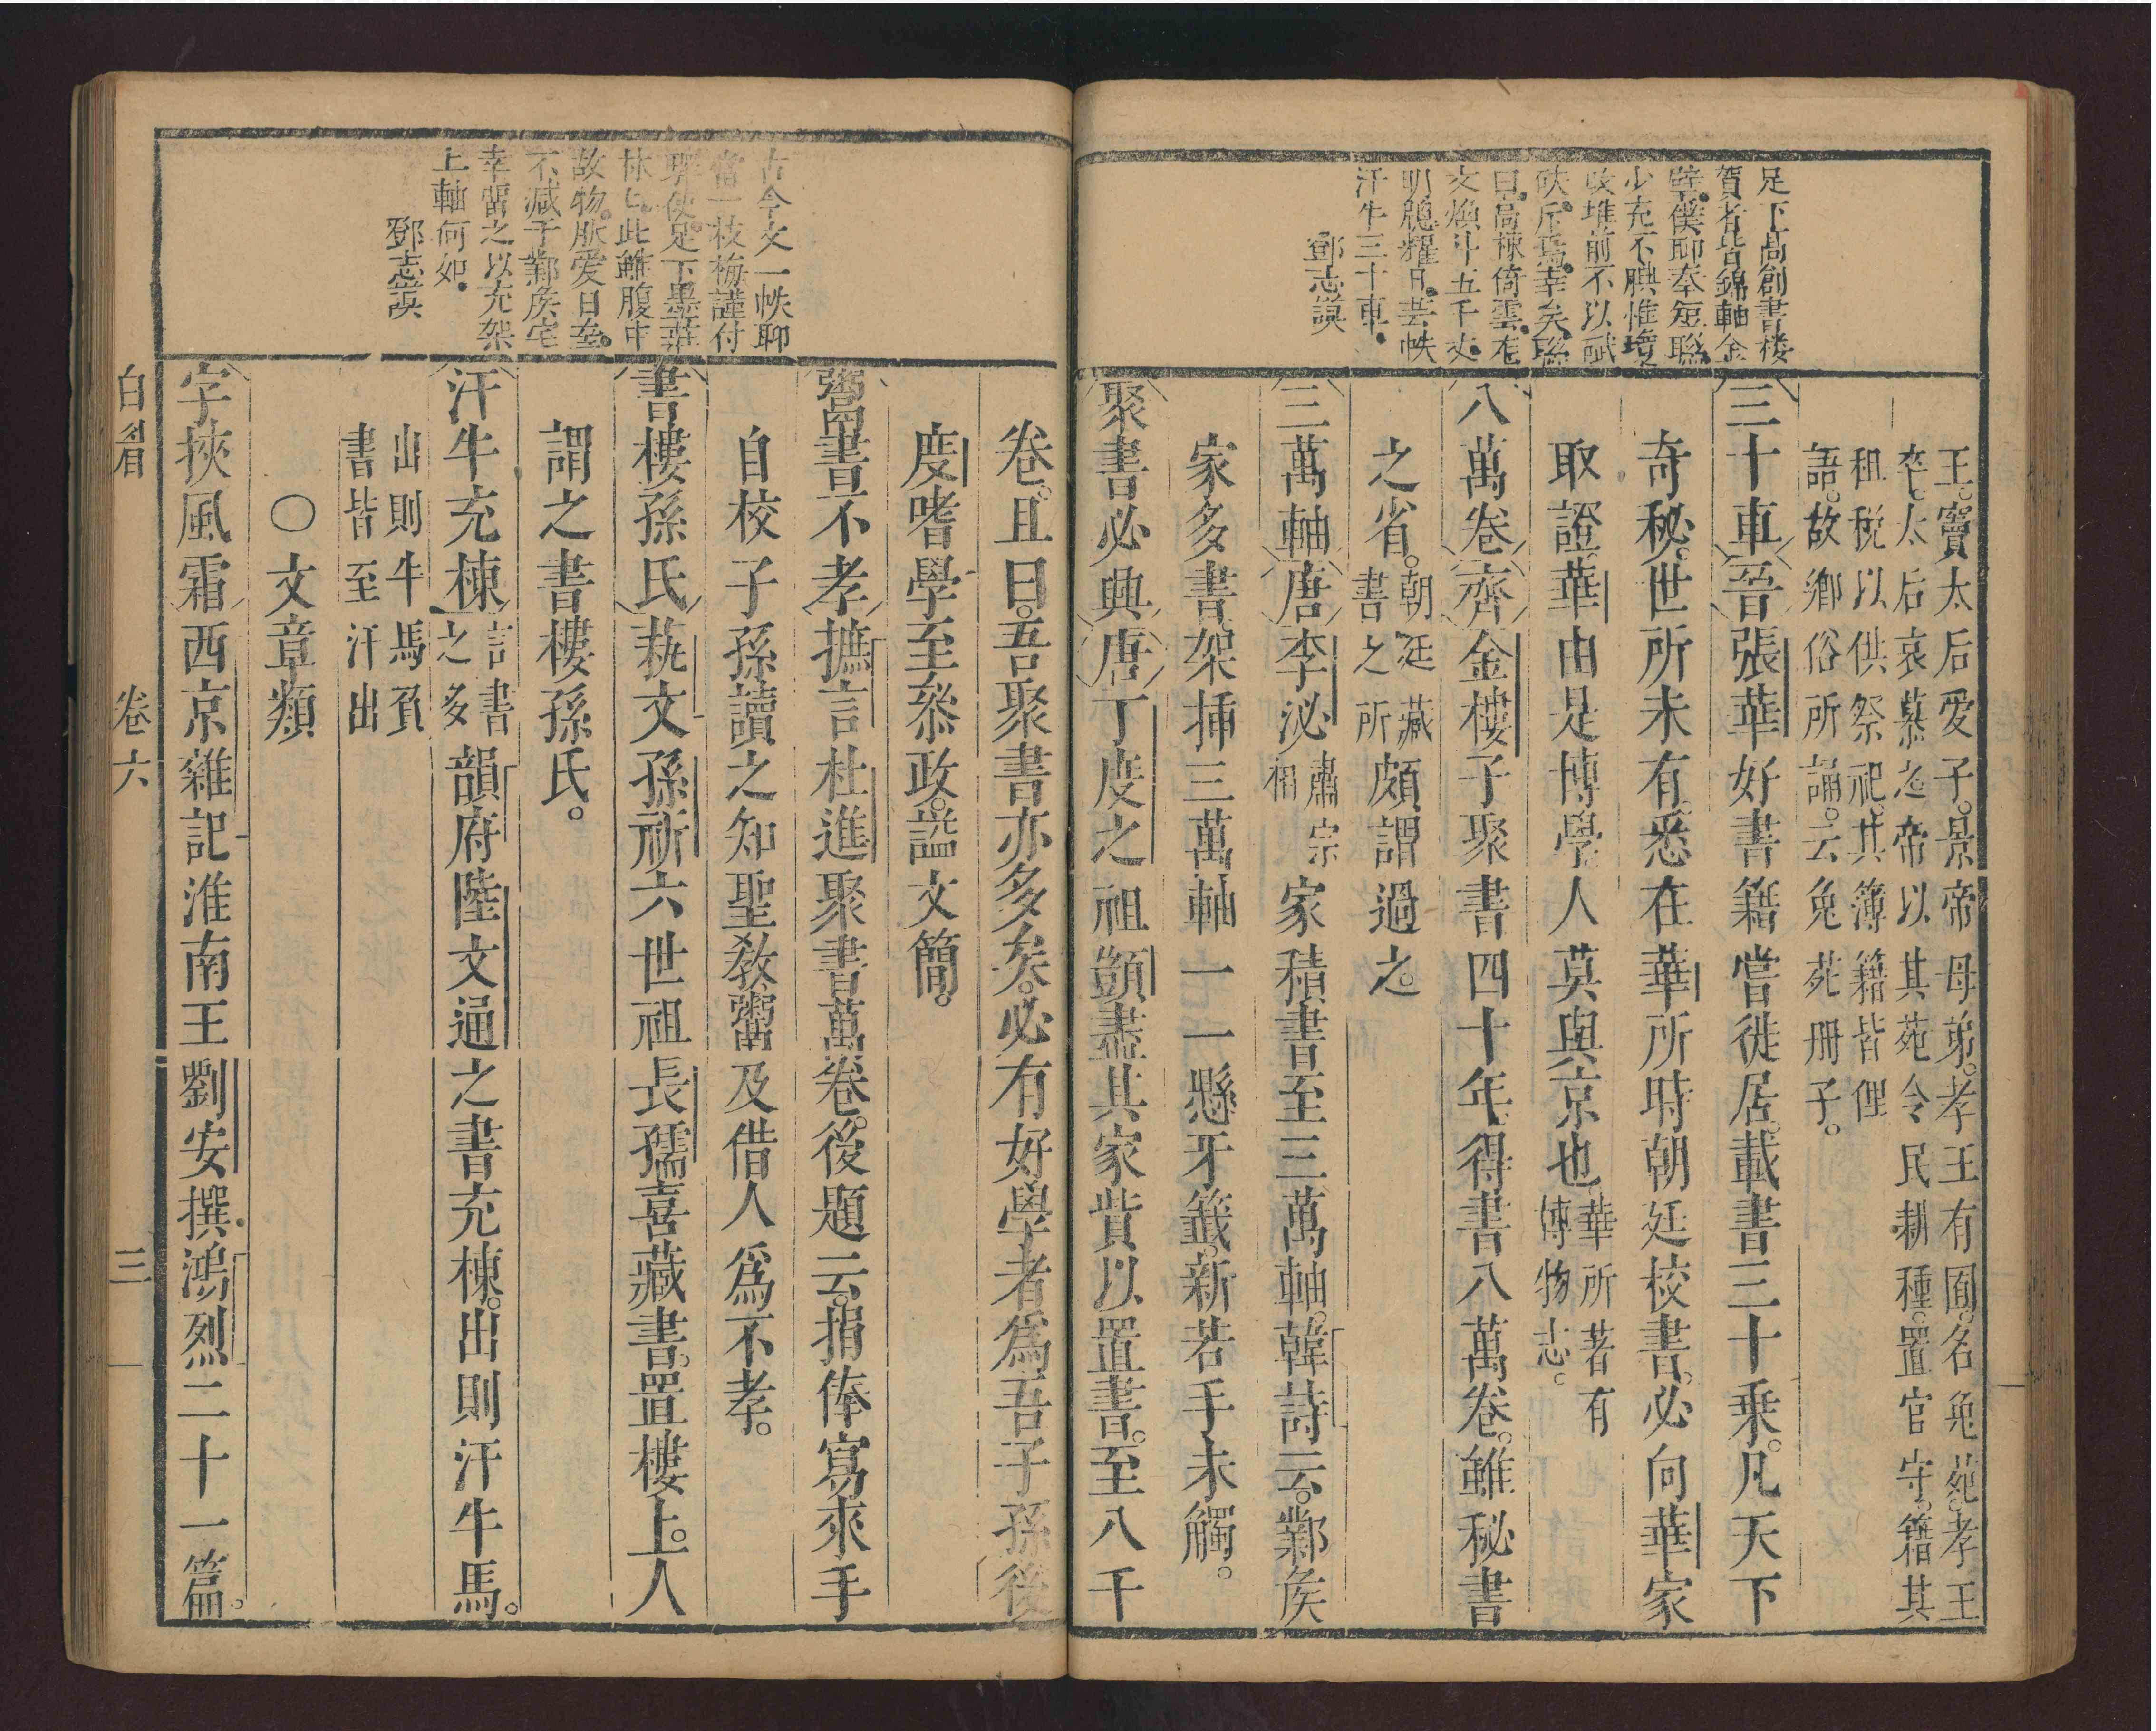 足下高創書樓
賀者皆錦軸金
聯僕耶奉短聯
少充不腆惟瓊
玖堆前不以碔
砆斥焉幸矣聯
曰高棟倚雲
文煥斗五千丈
明牕耀日芸帙
汗牛三十車
鄧志謨
王。竇太后愛子。景帝母弟。孝王有囿。名兔苑。孝王
卒。太后哀慕之帝以其苑令民耕種。置官守。籍其
租稅以供祭祀。其簿籍皆俚
語。故鄉俗所誦。云兔苑册子。
三十車晉張華好書籍嘗徙居。載書三十乘。凡天下
奇秘。世所未有。悉在華所時朝廷校書。必向華家
取證。華由是博學人莫與京也華所著有
博物志。
八萬卷齊金樓子聚書四十年。得書八萬卷。雖秘書
之省。朝廷藏
書之所頗謂過之。
三萬軸唐李泌肅宗
相家積書至三萬軸。韓詩云。鄴侯
家多書架挿三萬軸一一懸牙籤。新若手未觸。
聚書必興唐丁度之祖顗盡其家貲以置書。至八千
古今文一帙聊
當一枝梅謹付
聊使足下墨莊
故物朕愛日至
不減于鄴侯宅
幸留之以充架
上軸何如
鄧志謨
卷。且曰。吾聚書亦多矣。必有好學者爲吾子孫後
度嗜學至叅政。謚文簡。
鬻書不孝摭言杜進聚書萬卷。後題云。捐俸寫來手
自校子孫讀之知聖教鬻及借人爲不孝。
書樓孫氏蓺文孫祈六世祖長孺喜藏書。置樓上。人
謂之書樓孫氏。
汗牛充棟言書
之多韻府陸文通之書充棟。出則汗牛馬。
出則牛馬負
書皆至汗出
○文章類
字挾風霜西京雜記淮南王劉安撰鴻烈二十一篇。
白眉
卷六
三